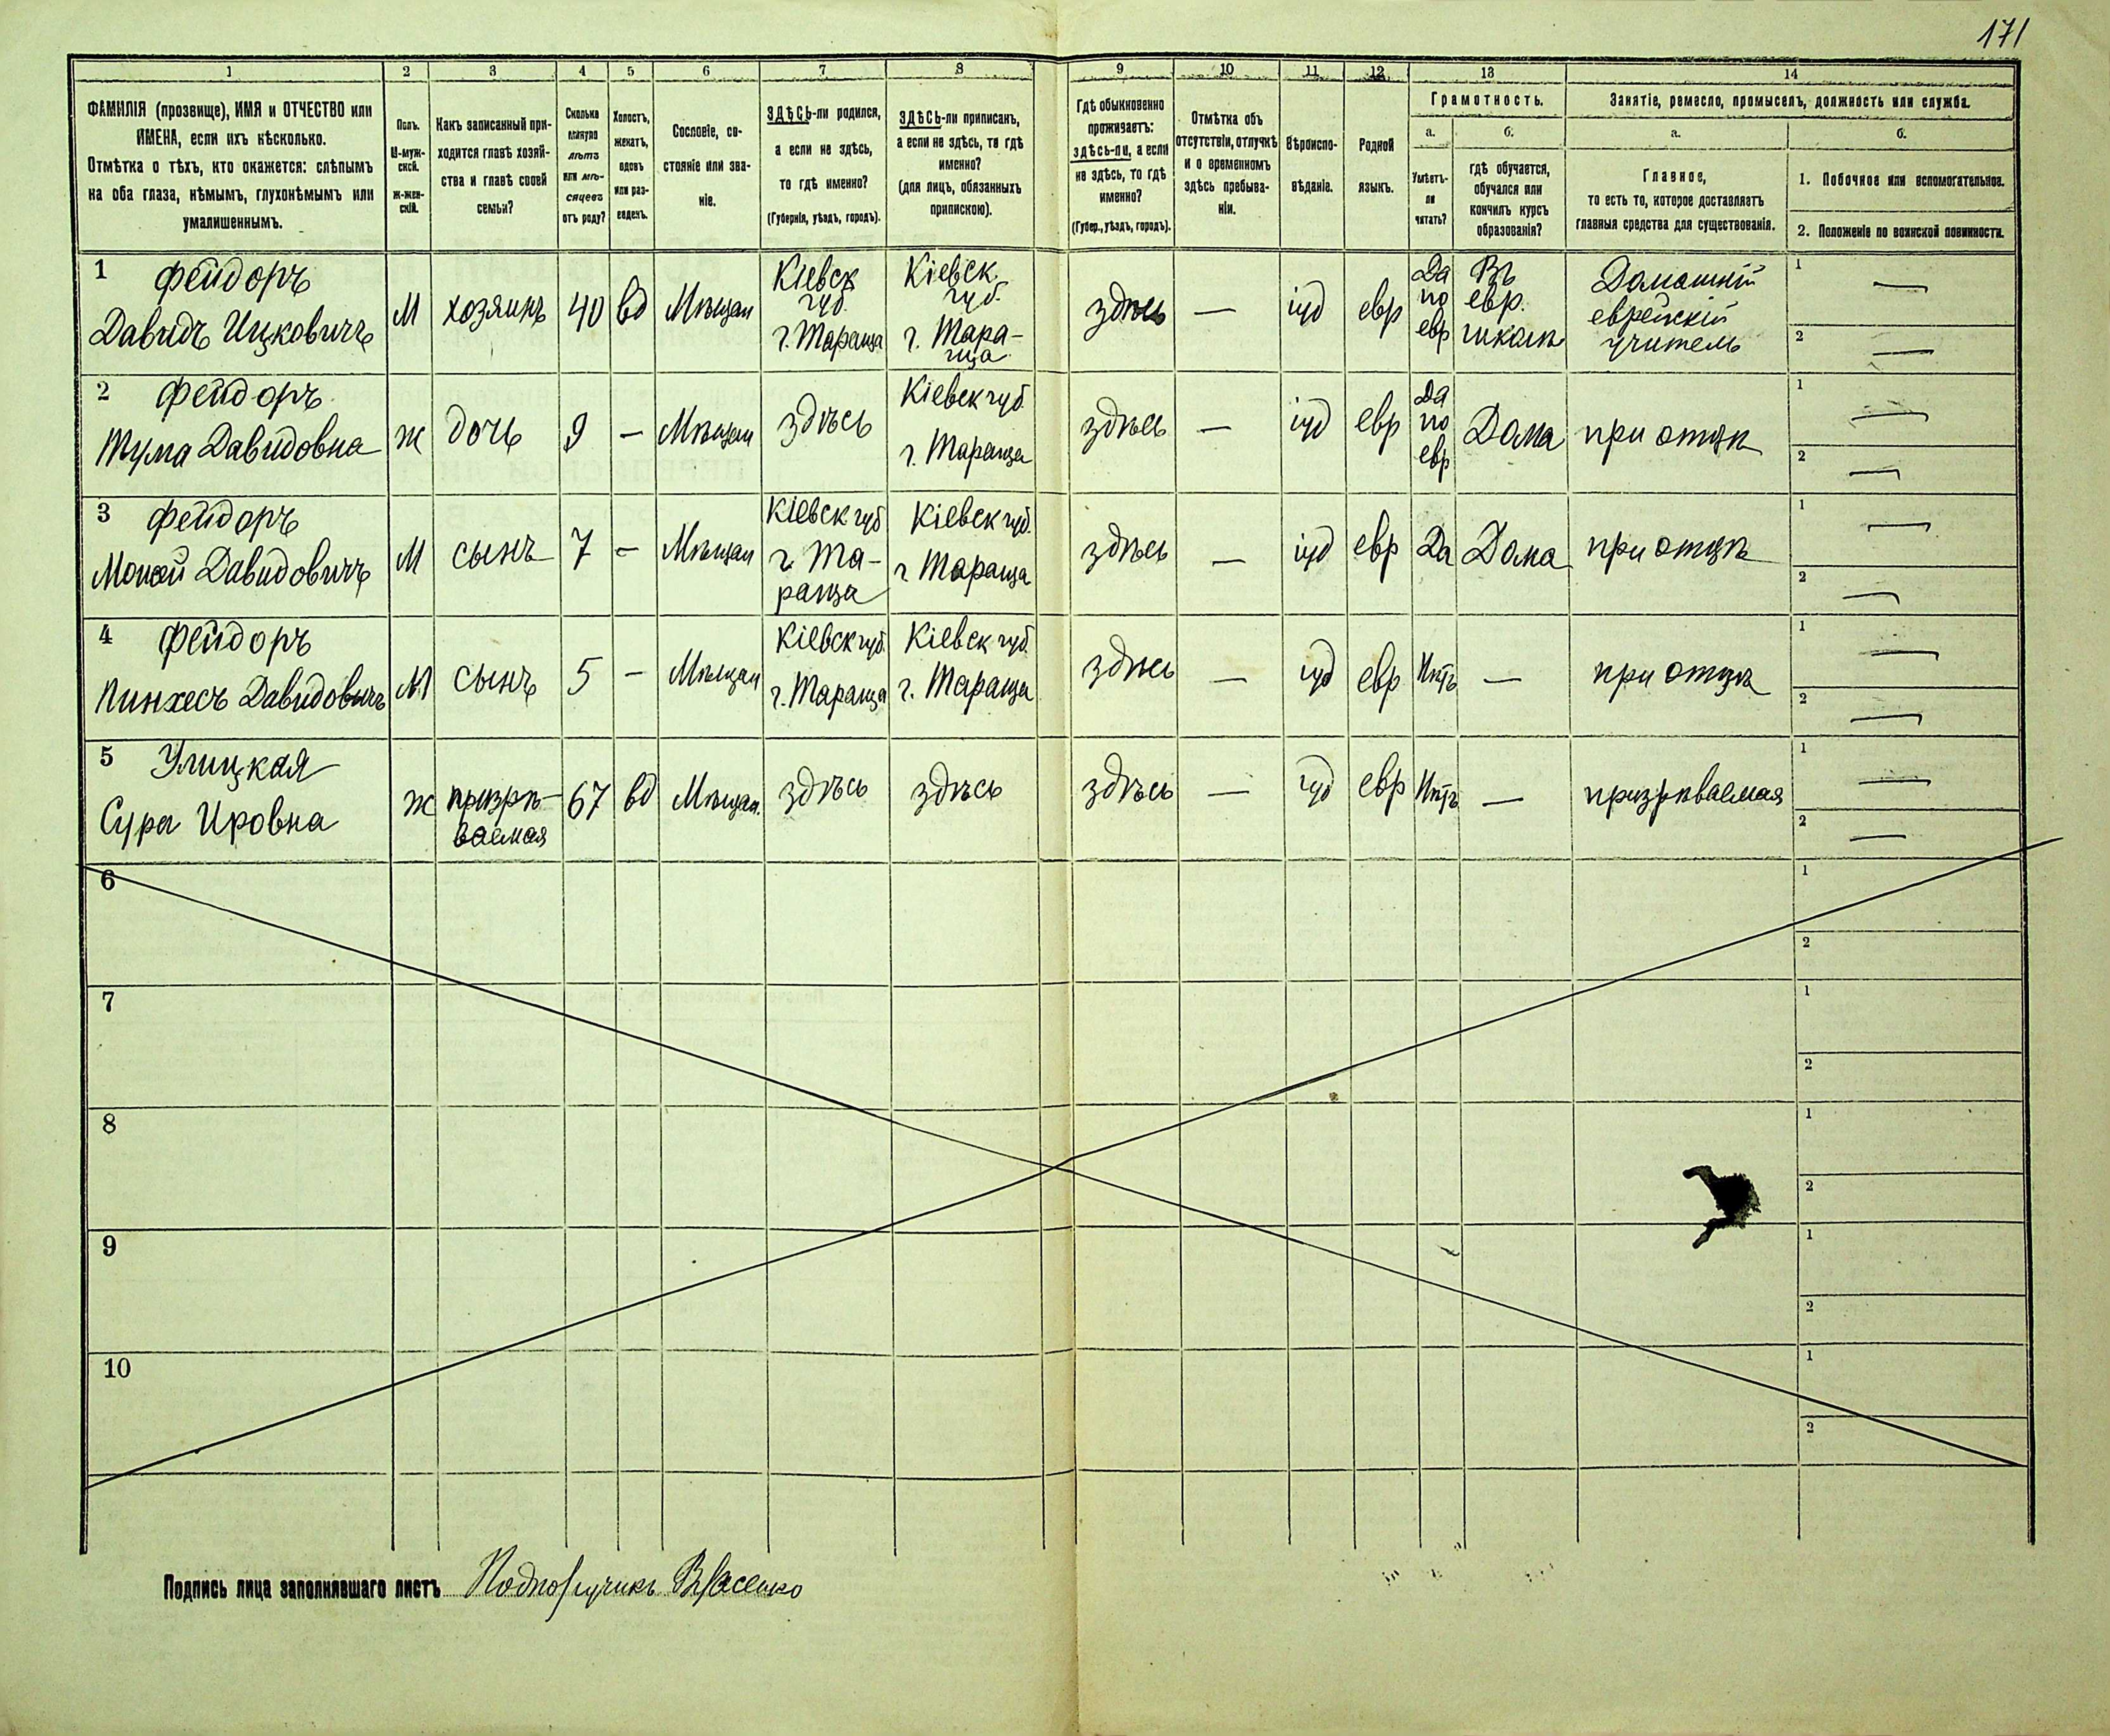 171
1 2 3 4 5 6 7 8 9 10 11 12 13 14
ФАМИЛІЯ (прозвище), ИМЯ и ОТЧЕСТВО или
ИМЕНА, если ихъ нѣсколько.
Отмѣтка о тѣхъ, кто окажется: слѣпымъ
на оба глаза, нѣмымъ, глухонѣмымъ или
умалишеннымъ.
Полъ.
М-муж-
ской.
Ж-жен-
скій.
Какъ записанный при-
ходится главѣ хозяй-
ства и главѣ своей
семьи?
Сколько
минуло
лѣтъ
или мѣ-
сяцевъ
отъ роду?
Холостъ,
женатъ,
вдовъ
или раз-
веденъ.
Сословіе, со-
стояніе или зва-
ніе.
ЗДѢСЬ-ли родился,
а если не здѣсь,
то гдѣ именно?
(Губернія, уѣздъ, городъ).
ЗДѢСЬ-ли приписанъ,
а если не здѣсь, то гдѣ
именно?
(для лицъ, обязанныхъ
припискою).
Гдѣ обыкновенно
проживаетъ:
здѣсь-ли, а если
не здѣсь, то гдѣ
именно?
(Губер., уѣздъ, городъ).
Отмѣтка объ
отсутствіи, отлучкѣ
и о временномъ
здѣсь пребыва-
ніи.
Вѣроиспо-
вѣданіе.
Родной
языкъ.
Грамотность.
а.
Умѣетъ-
ли
читать?
б.
гдѣ обучается,
обучался или
кончилъ курсъ
образованія?
Занятіе, ремесло, промыселъ, должность или служба.
а.
Главное,
то есть то, которое доставляетъ
главныя средства для существованія.
б.
1. Побочное или вспомогательное.
2. Положеніе по воинской повинности.
1 Фейдоръ
Давидъ Ицковичъ
М
хозяинъ
40
вд
Мѣщан
Кіевск
губ.
г. Тараща
Кіевск.
губ.
г. Тара-
ща
здѣсь
—
іуд
евр
Да
по
евр
Въ
евр.
школѣ
Домашній
еврейскій
учитель
1 —
2 —
2 Фейдоръ
Тума Давидовна
ж
дочь
9
—
Мѣщан
здѣсь
Кіевск губ.
г. Тараща
здѣсь
—
іуд
евр
Да
по
евр
Дома
при отцѣ
1 —
2 —
3 Фейдоръ
Мошей Давидовичъ
М
сынъ
7
—
Мѣщан
Кіевск губ
г. Та-
раща
Кіевск губ.
г Тараща
здѣсь
—
іуд
евр
Да
Дома
при отцѣ
1 —
2 —
4 Фейдоръ
Пинхесъ Давидовичъ
М
сынъ
5
—
Мѣщан
Кіевск губ.
г. Тараща
Кіевск губ.
г. Тараща
здѣсь
—
іуд
евр
Нѣтъ
—
при отцѣ
1 —
2 —
5 Улицкая
Сура Ировна
ж
призрѣ-
ваемая
67
вд
Мѣщан.
здѣсь
здѣсь
здѣсь
—
іуд
евр
Нѣтъ
—
призрѣваемая
1 —
2 —
6
1
2
7
1
2
8
1
2
9
1
2
10
1
2
Подпись лица заполнявшаго листъ Подпоручикъ Власенко